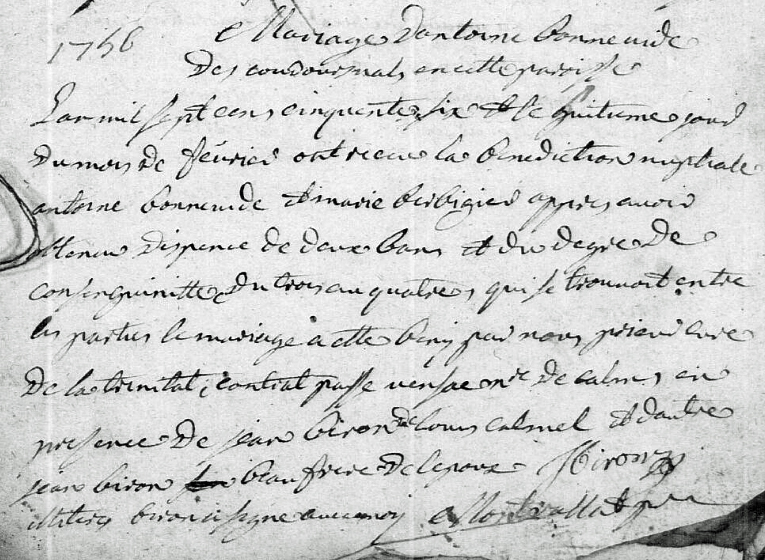 1756 Mariage d'antoine bonneuide
Des coudournals en cette paroisse
L'an mil sept cens cinquante six et le huitieme jour
du mois de fevrier ont receu la benediction nuptiale
antoine bonneuide et marie berbigier appres avoir
obtenu dispence de deux bans et du degre de
consenguinitte du trois au quatre, qui se trouvoit entre
les parties le mariage a ette beny par nous prieur cure
de la trinitat, contrat passe
presence de jean biron de louis calmel et d'autre
jean biron beau frere de lepoux JBiron
illiteres biron signe avec moy Montvallat pr